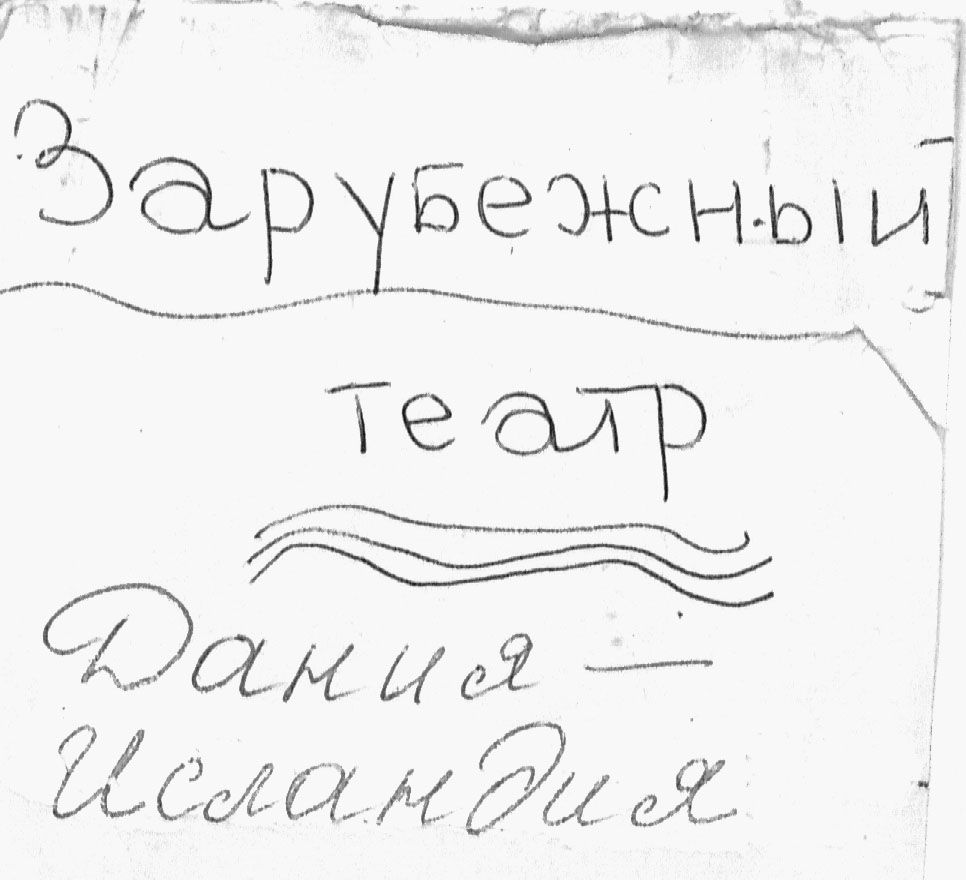 Зарубежный
театр
Дания —
Исландия